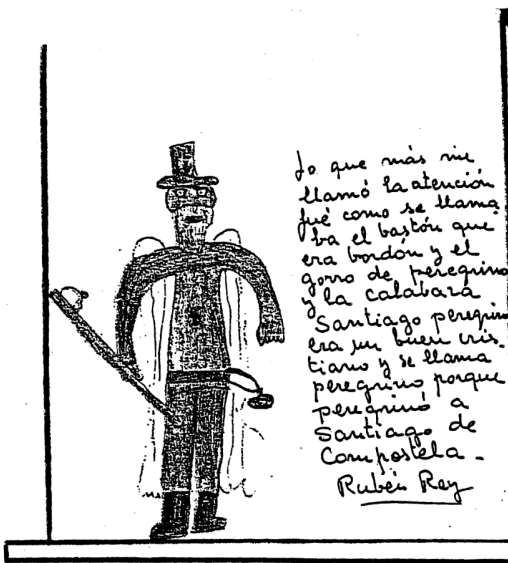 Lo que más me
llamó la atención
fué como se llama
ba el bastón que
era bordón y el
gorro de peregrino
y la calabaza
Santiago peregrino
era un buen cris-
tiano y se llama
peregrino porque
peregrinó a
Santiago de
Compostela -
Rubén Rey